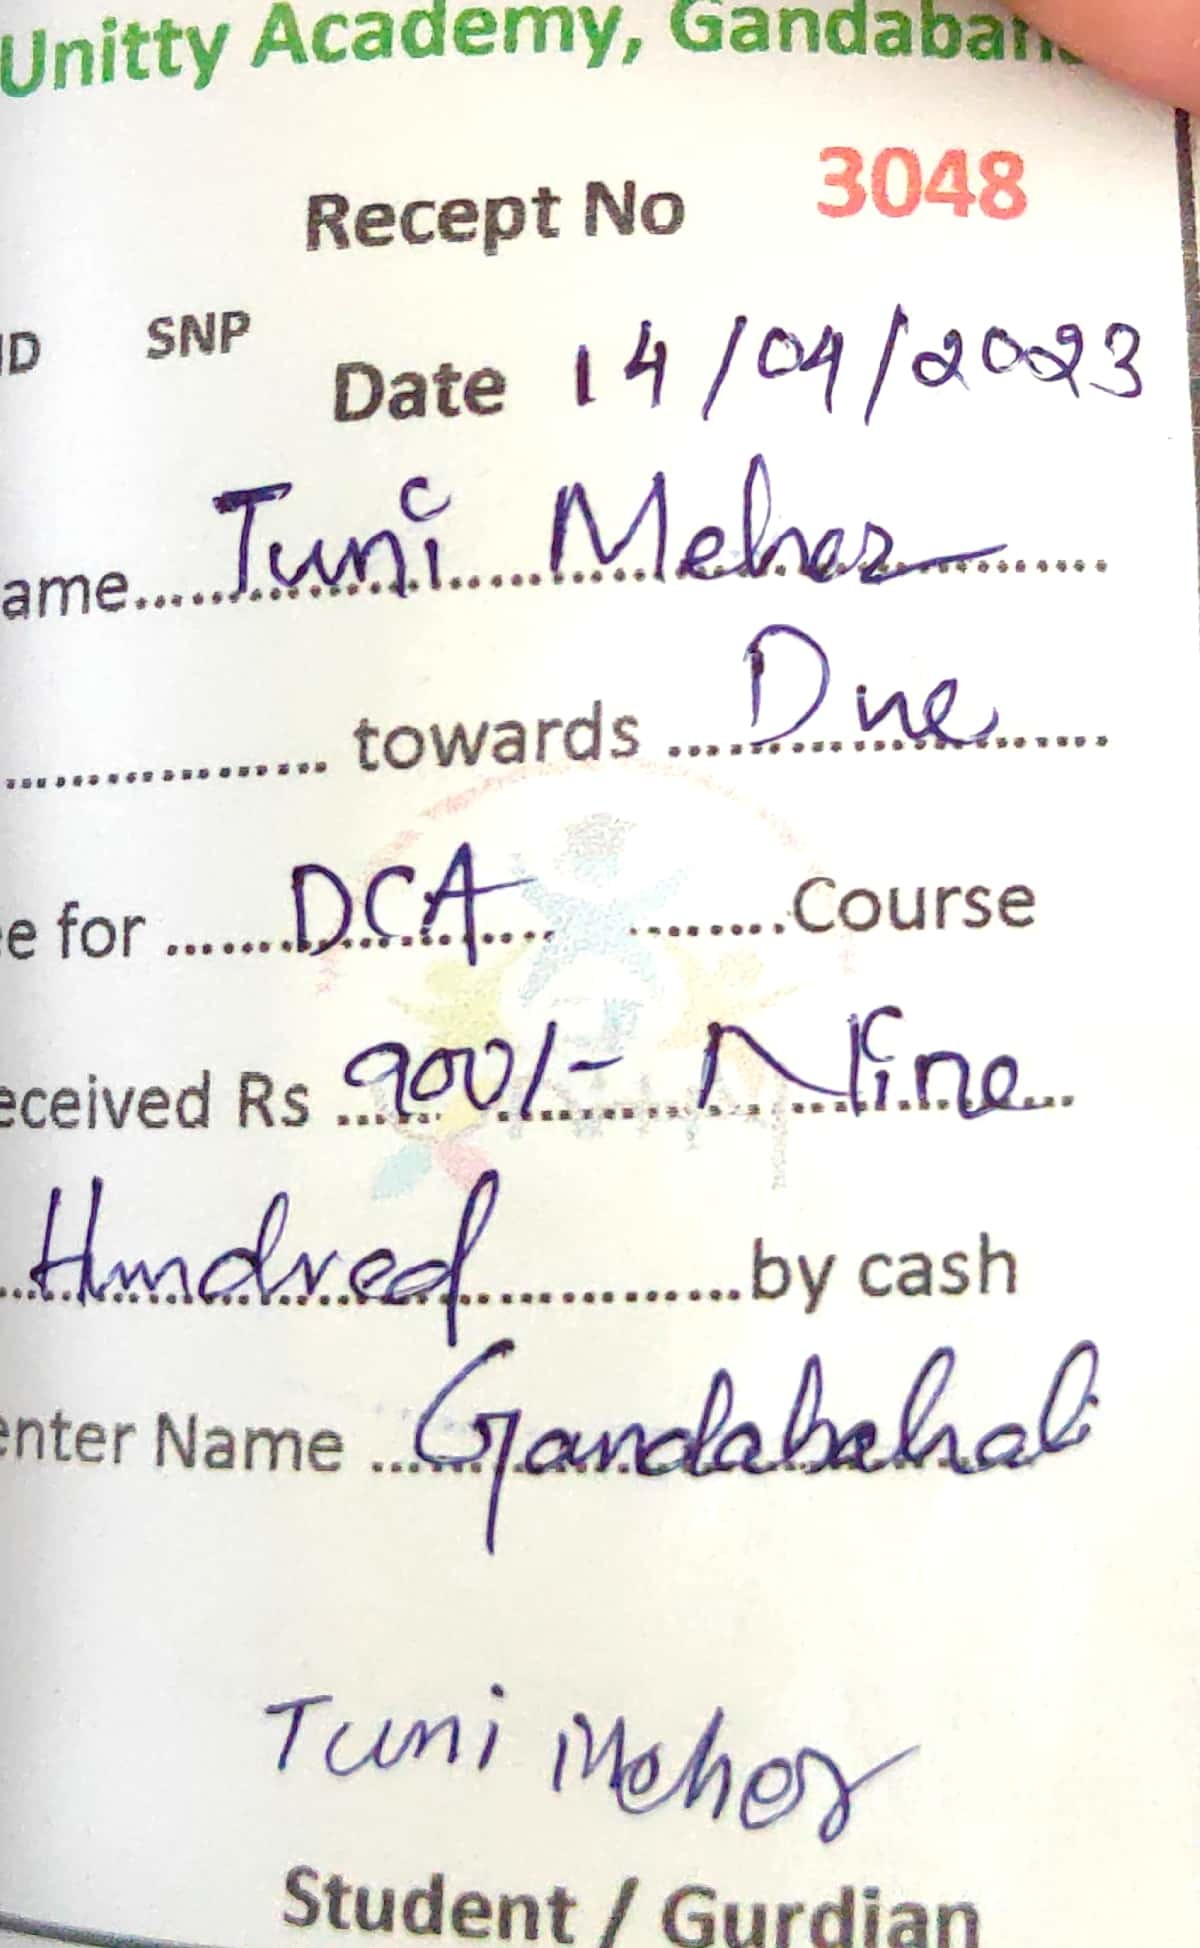 Unitty Academy, Gandabah
Recept No 3048
ID SNP
Date 14/04/2023
ame......Tuni Meher......
.................. towards ......Due......
e for ......DCA...........Course
eceived Rs ......900/- Nine...
...Hundred..................by cash
enter Name ...Gandabahali
Tuni Meher
Student / Gurdian